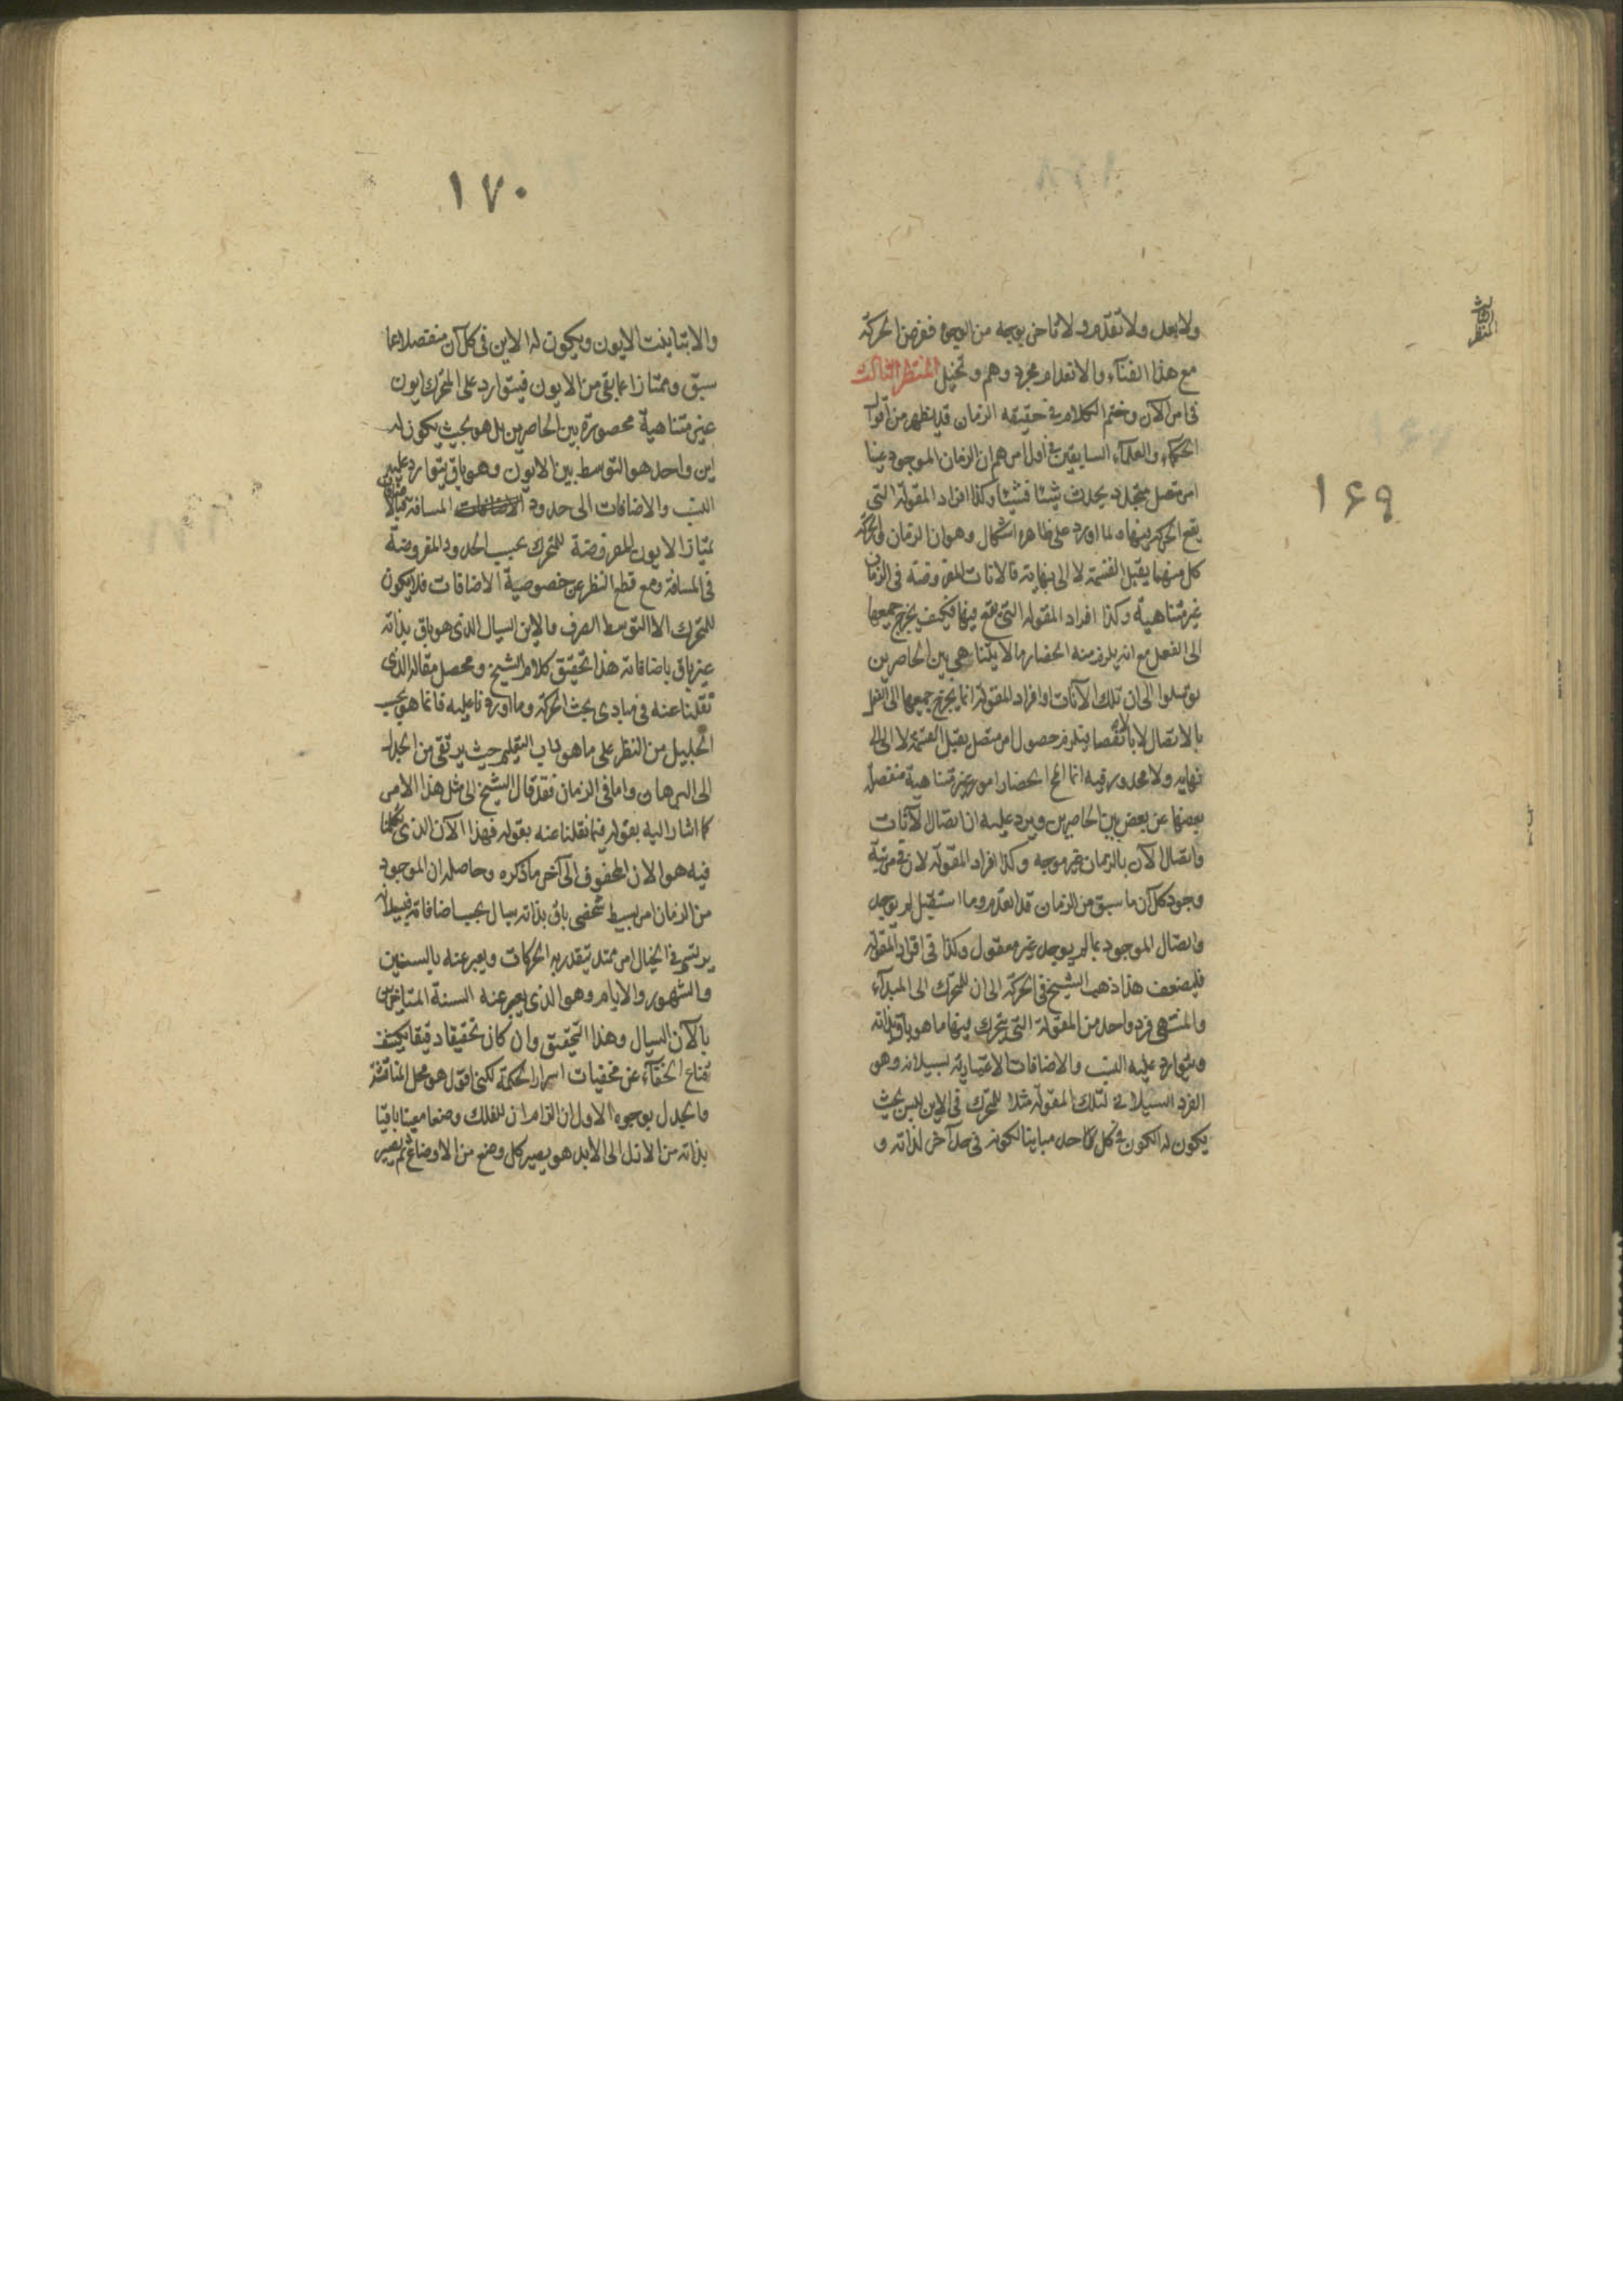 ١٦٩
ولا بعد ولا تقدم ولا تاخر بوجه من الوجوه ففرض الحركة
مع هذا الفناء والانعدام مجرد وهم وتخيل المنظر الثالث
فى امر الآن وختم الكلام فى حقيقة الزمان قد يظهر من اقوال
الحكماء والعلماء السابقين فى اول امرهم ان الزمان الموجود عينا
امر متصل متجدد يحدث شيئا فشيئا وكذا افراد المقولة التى
يقع الحركة فيها ولما اورد على ظاهره اشكال وهو ان الزمان والحركة
كل منهما يقبل القسمة لا الى نهاية فالانات المفروضة فى الزمان
غير متناهية وكذا افراد المقولة التى تقع فيها فكيف يخرج جميعها
الى الفعل مع انه يلزم منه انحصار ما لا يتناهى بين الحاصرين
توسلوا الى ان تلك الآنات او افراد المقولة انما يخرج جميعها الى الفعل
بالاتصال لا بالانفصال فيلزم حصول امر متصل يقبل القسمة لا الى
نهاية ولا محدور فيه انما المح انحصار امور غير متناهية منفصلة
بعضها عن بعض بين الحاصرين ويرد عليه ان اتصال الآنات
واتصال الآن بالزمان غير موجه وكذا افراد المقولة لان فى مرتبة
وجود كل آن ما سبق من الزمان قد انعدم وما استقبل لم يوجد
واتصال الموجود بما لم يوجد غير معقول وكذا فى افراد المقولة
فلضعف هذا ذهب الشيخ فى الحركة الى ان للمتحرك الى المبدأء
والمنتهى فرد واحد من المقولة التى يتحرك فيها ما هو باق بذاته
ويتوارد عليه النسب والاضافات الاعتبارية لسيلانه وهو
الفرد السيلانى لتلك المقولة مثلا للمتحرك فى الاين ليس بحيث
يكون له الكون فى كل حد مباينا لكونه فى حد آخر لذاته و
١٧٠
والا لتباينت الايون ويكون له الاين فى كل آن منفصلا عما
سبق وممتازا عما بقى من الايون فيتوارد على المتحرك ايون
غير متناهية محصورة بين الحاصرين بل هو بحيث يكون له
اين واحد هو التوسط بين الايون وهو باق يتوارد عليه
النسب والاضافات الى حدود المسافة
يمتاز الايون المفروضة للمتحرك بحسب الحدود المفروضة
فى المسافة ومع قطع النظر عن خصوصية الاضافات فلا يكون
للمتحرك الا التوسط الصرف والاين السيال الذى هو باق بذاته
غير باق باضافاته هذا تحقيق كلام الشيخ ومحصل مقاله الذى
نقلنا عنه فى مبادى بحث الحركة وما اوردنا عليه فانما هو بحسب
الجليل من النظر على ما هو داب التعليم حيث يرتقى من الجدل
الى البرهان واما فى الزمان فقد قال الشيخ الى مثل هذا الامر
كما اشار اليه بقوله فيما نقلنا عنه بقوله فهذا الآن الذى تكلمنا
فيه هو الان المحفوف الى آخر ما ذكره وحاصله ان الموجود
من الزمان امر بسيط شخصى باق بذاته سيال بحسب اضافاته فبسيلانه
يرتسم فى الخيال امر ممتد يتقدر به الحركات ويعبر عنه بالسنين
والشهور والايام وهو الذى يعبر عنه السنة المتاخرين
بالآن السيال وهذا التحقيق وان كان تحقيقا دقيقا يكشف
قناع الخفاء عن مخفيات اسرار الحكمة لكنى اقول هو محل المناقشة
والجدل بوجوه الاول ان التزام ان للفلك وضعا معينا باقيا
بذاته من الازل الى الابد هو يصير كل وضع من الاوضاع ثم يصير